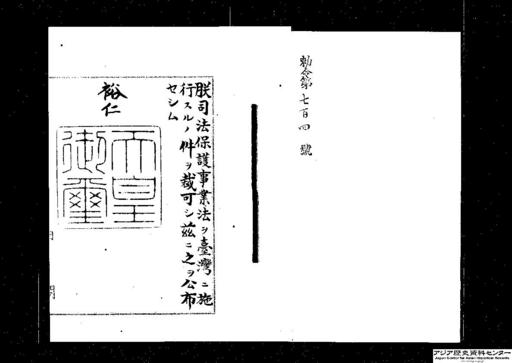 勅令第七百四號
朕司法保護事業法ヲ臺灣ニ施
行スルノ件ヲ裁可シ茲ニ之ヲ公布
セシム
裕仁
天皇
御璽
アジア歴史資料センター
Japan Center for Asian Historical Records